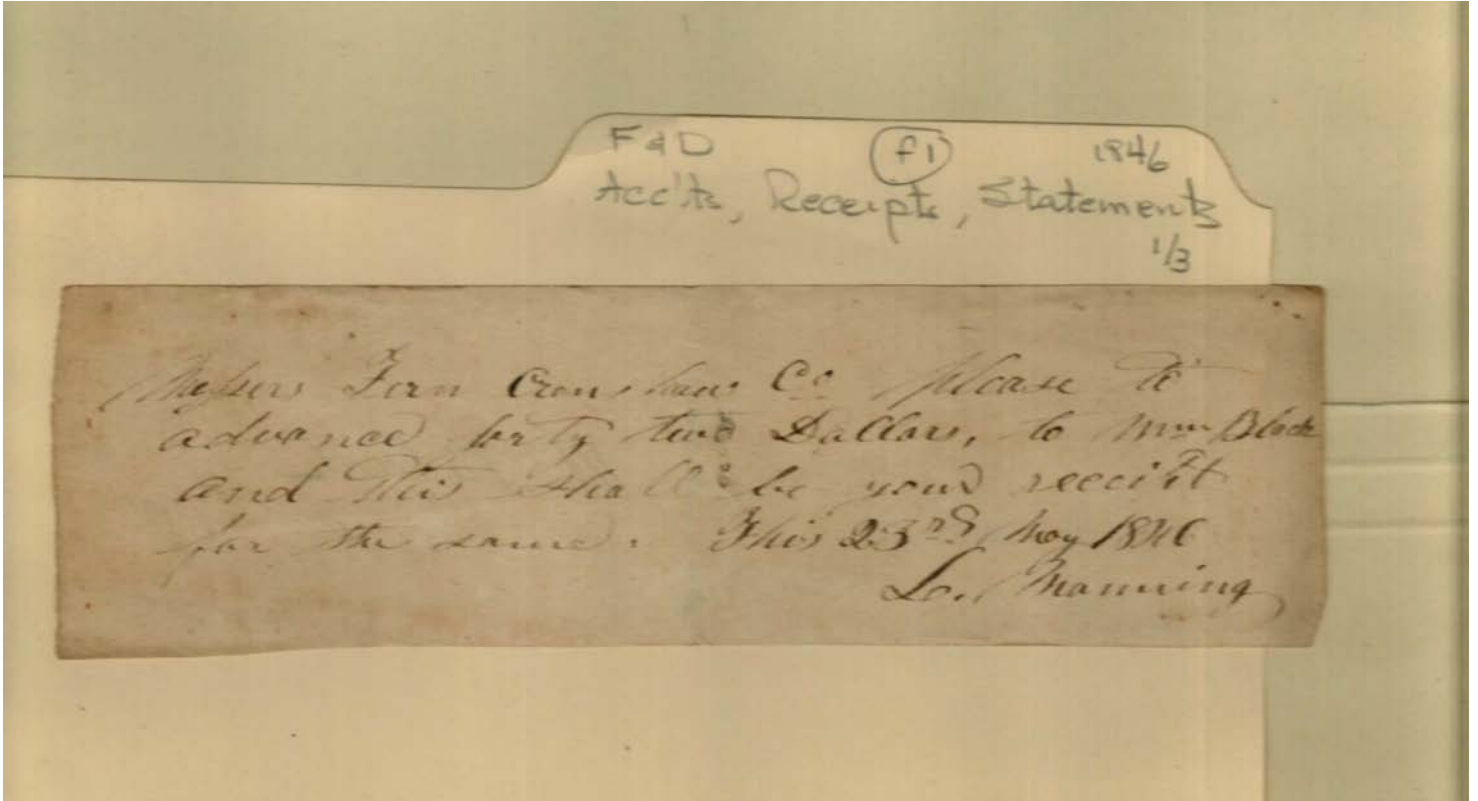 F & D (f1) 1846
Acc'ts, Receipts, Statements
1/3
Messers Fern Crenshaw Co please to
advance forty two Dollars, to Wm Black
and this shall be your receipt
for the same. This 23rd May 1846
L. Manning